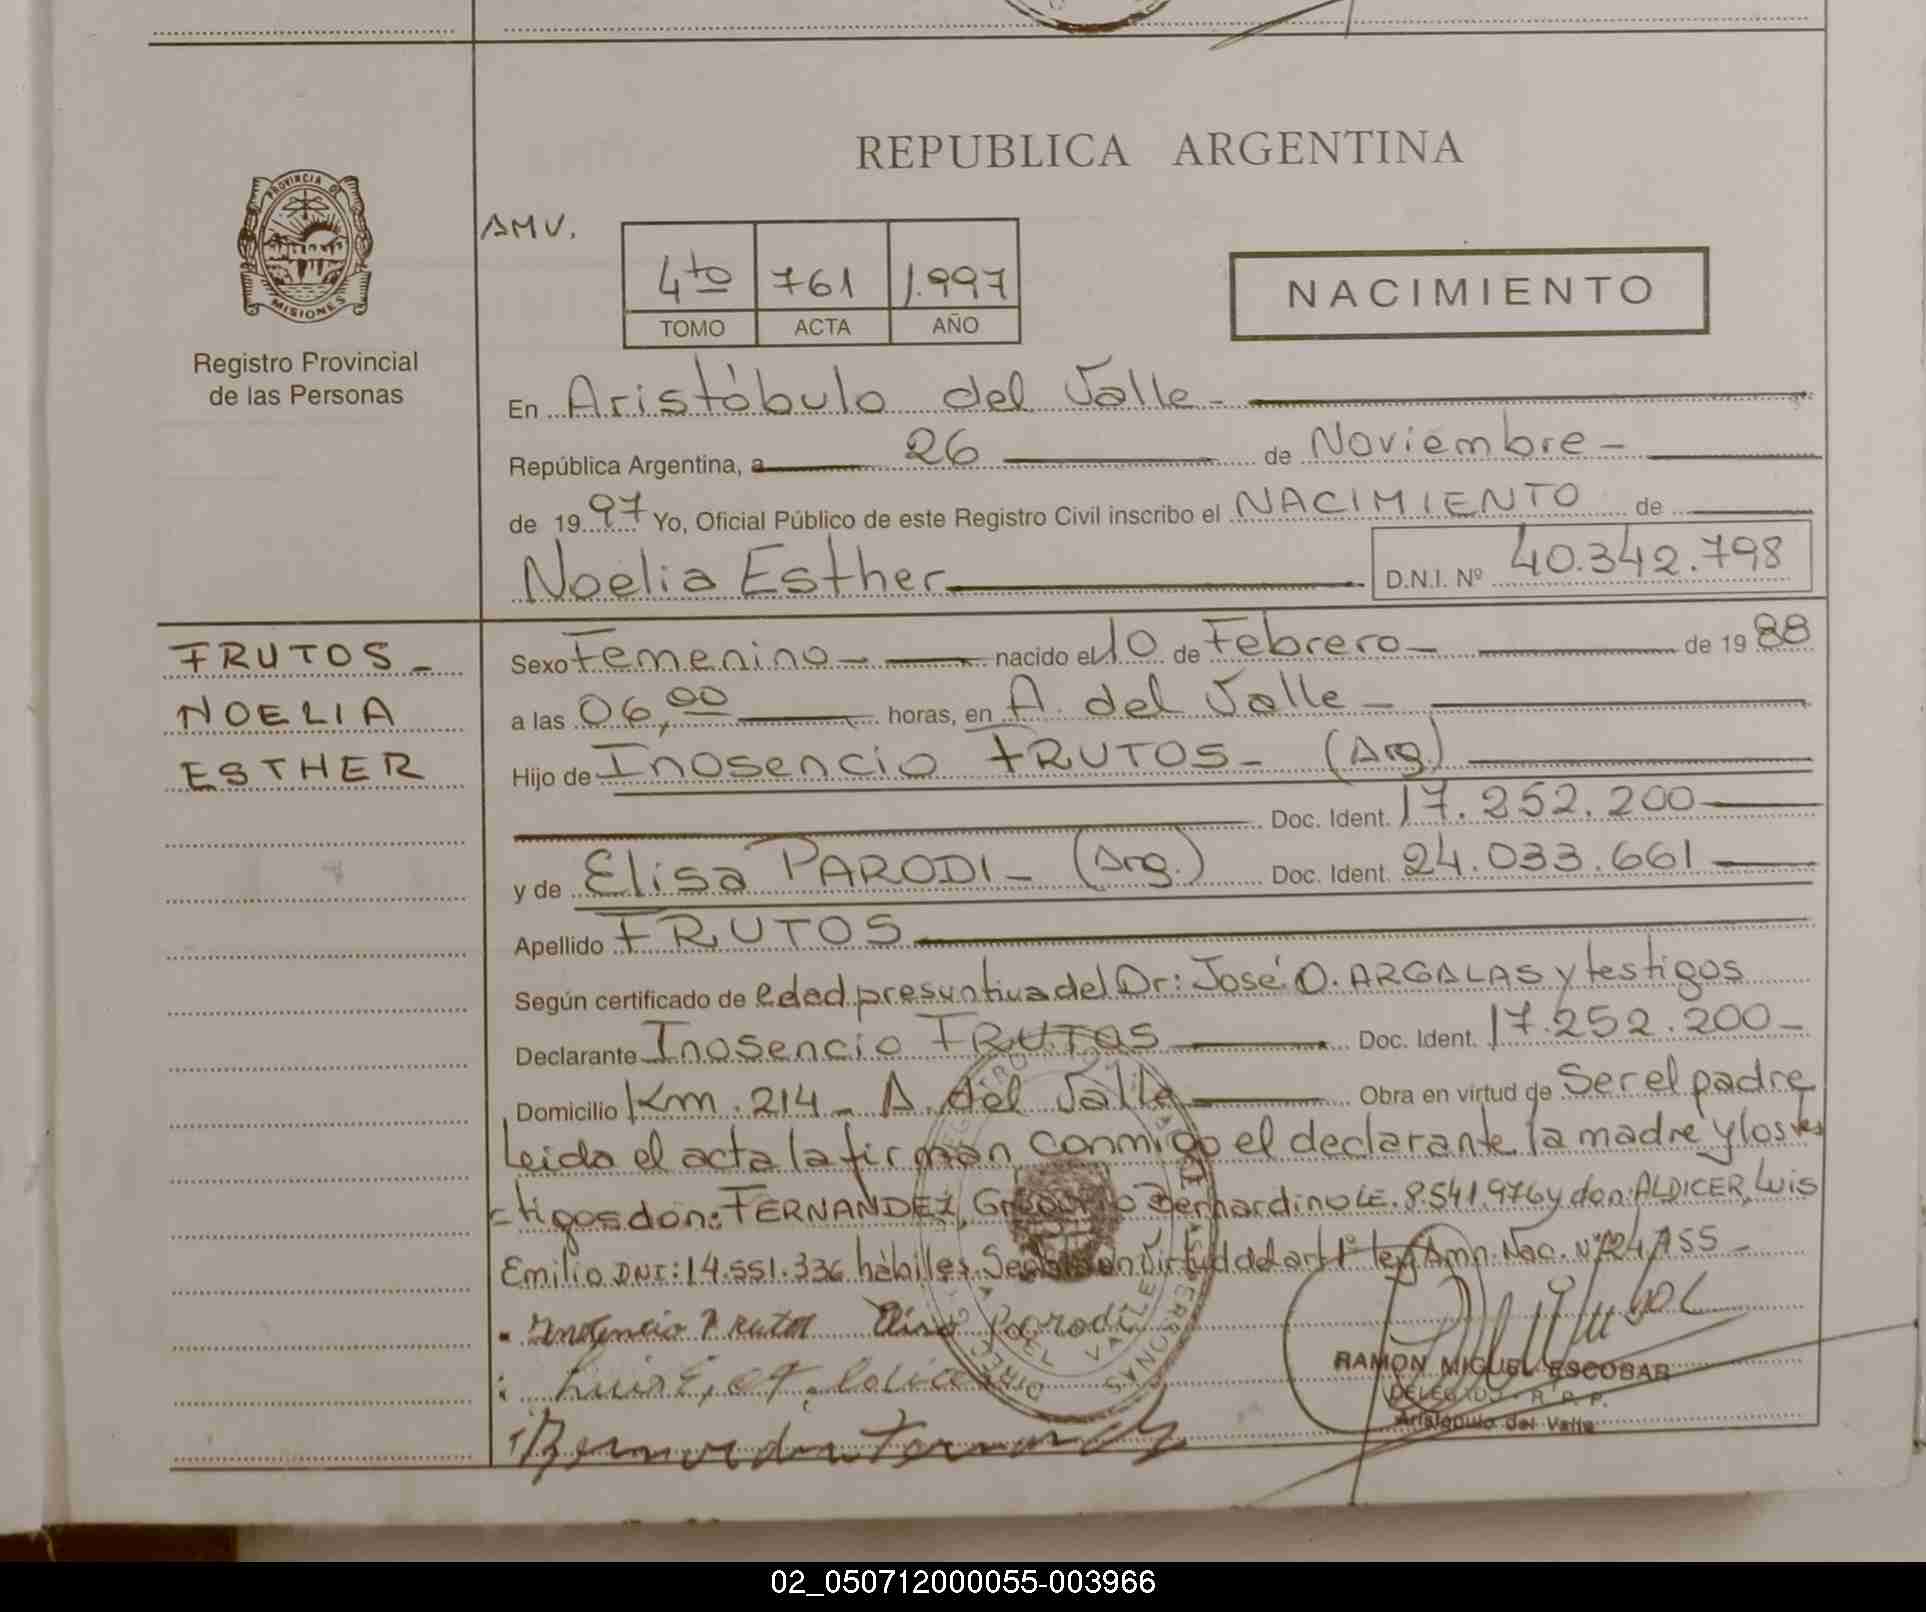 REPUBLICA ARGENTINA
PROVINCIA DE
MISIONES
Registro Provincial
de las Personas
AMV.
4to 761 1.997
TOMO ACTA AÑO
NACIMIENTO
En Aristóbulo del Valle -
República Argentina, a 26 de Noviembre -
de 1997 Yo, Oficial Público de este Registro Civil inscribo el NACIMIENTO de
Noelia Esther D.N.I. Nº 40.342.798
FRUTOS -
NOELIA
ESTHER
Sexo Femenino - nacido el 10 de Febrero - de 1988
a las 06,00 horas, en A. del Valle -
Hijo de Inosencio FRUTOS - (Arg.)
Doc. Ident. 17.252.200
y de Elisa PARODI - (Arg.) Doc. Ident. 24.033.661
Apellido FRUTOS
Según certificado de edad presuntiva del Dr: José O. ARGALAS y testigos
Declarante Inosencio FRUTOS Doc. Ident. 17.252.200 -
Domicilio Km. 214 - A. del Valle Obra en virtud de Ser el padre
Leida el acta la firman conmigo el declarante, la madre y los tes
tigos don: FERNANDEZ, Bernardino LE. 8.541.976 y don: ALDICER, Luis
Emilio DNI: 14.551.336 hábiles. en virtud del art 1º ley Amn. Nac. Nº
Parodi
RAMON MIGUEL ESCOBAR
DELEGADO - R. P. P.
Aristóbulo del Valle
02_050712000055-003966